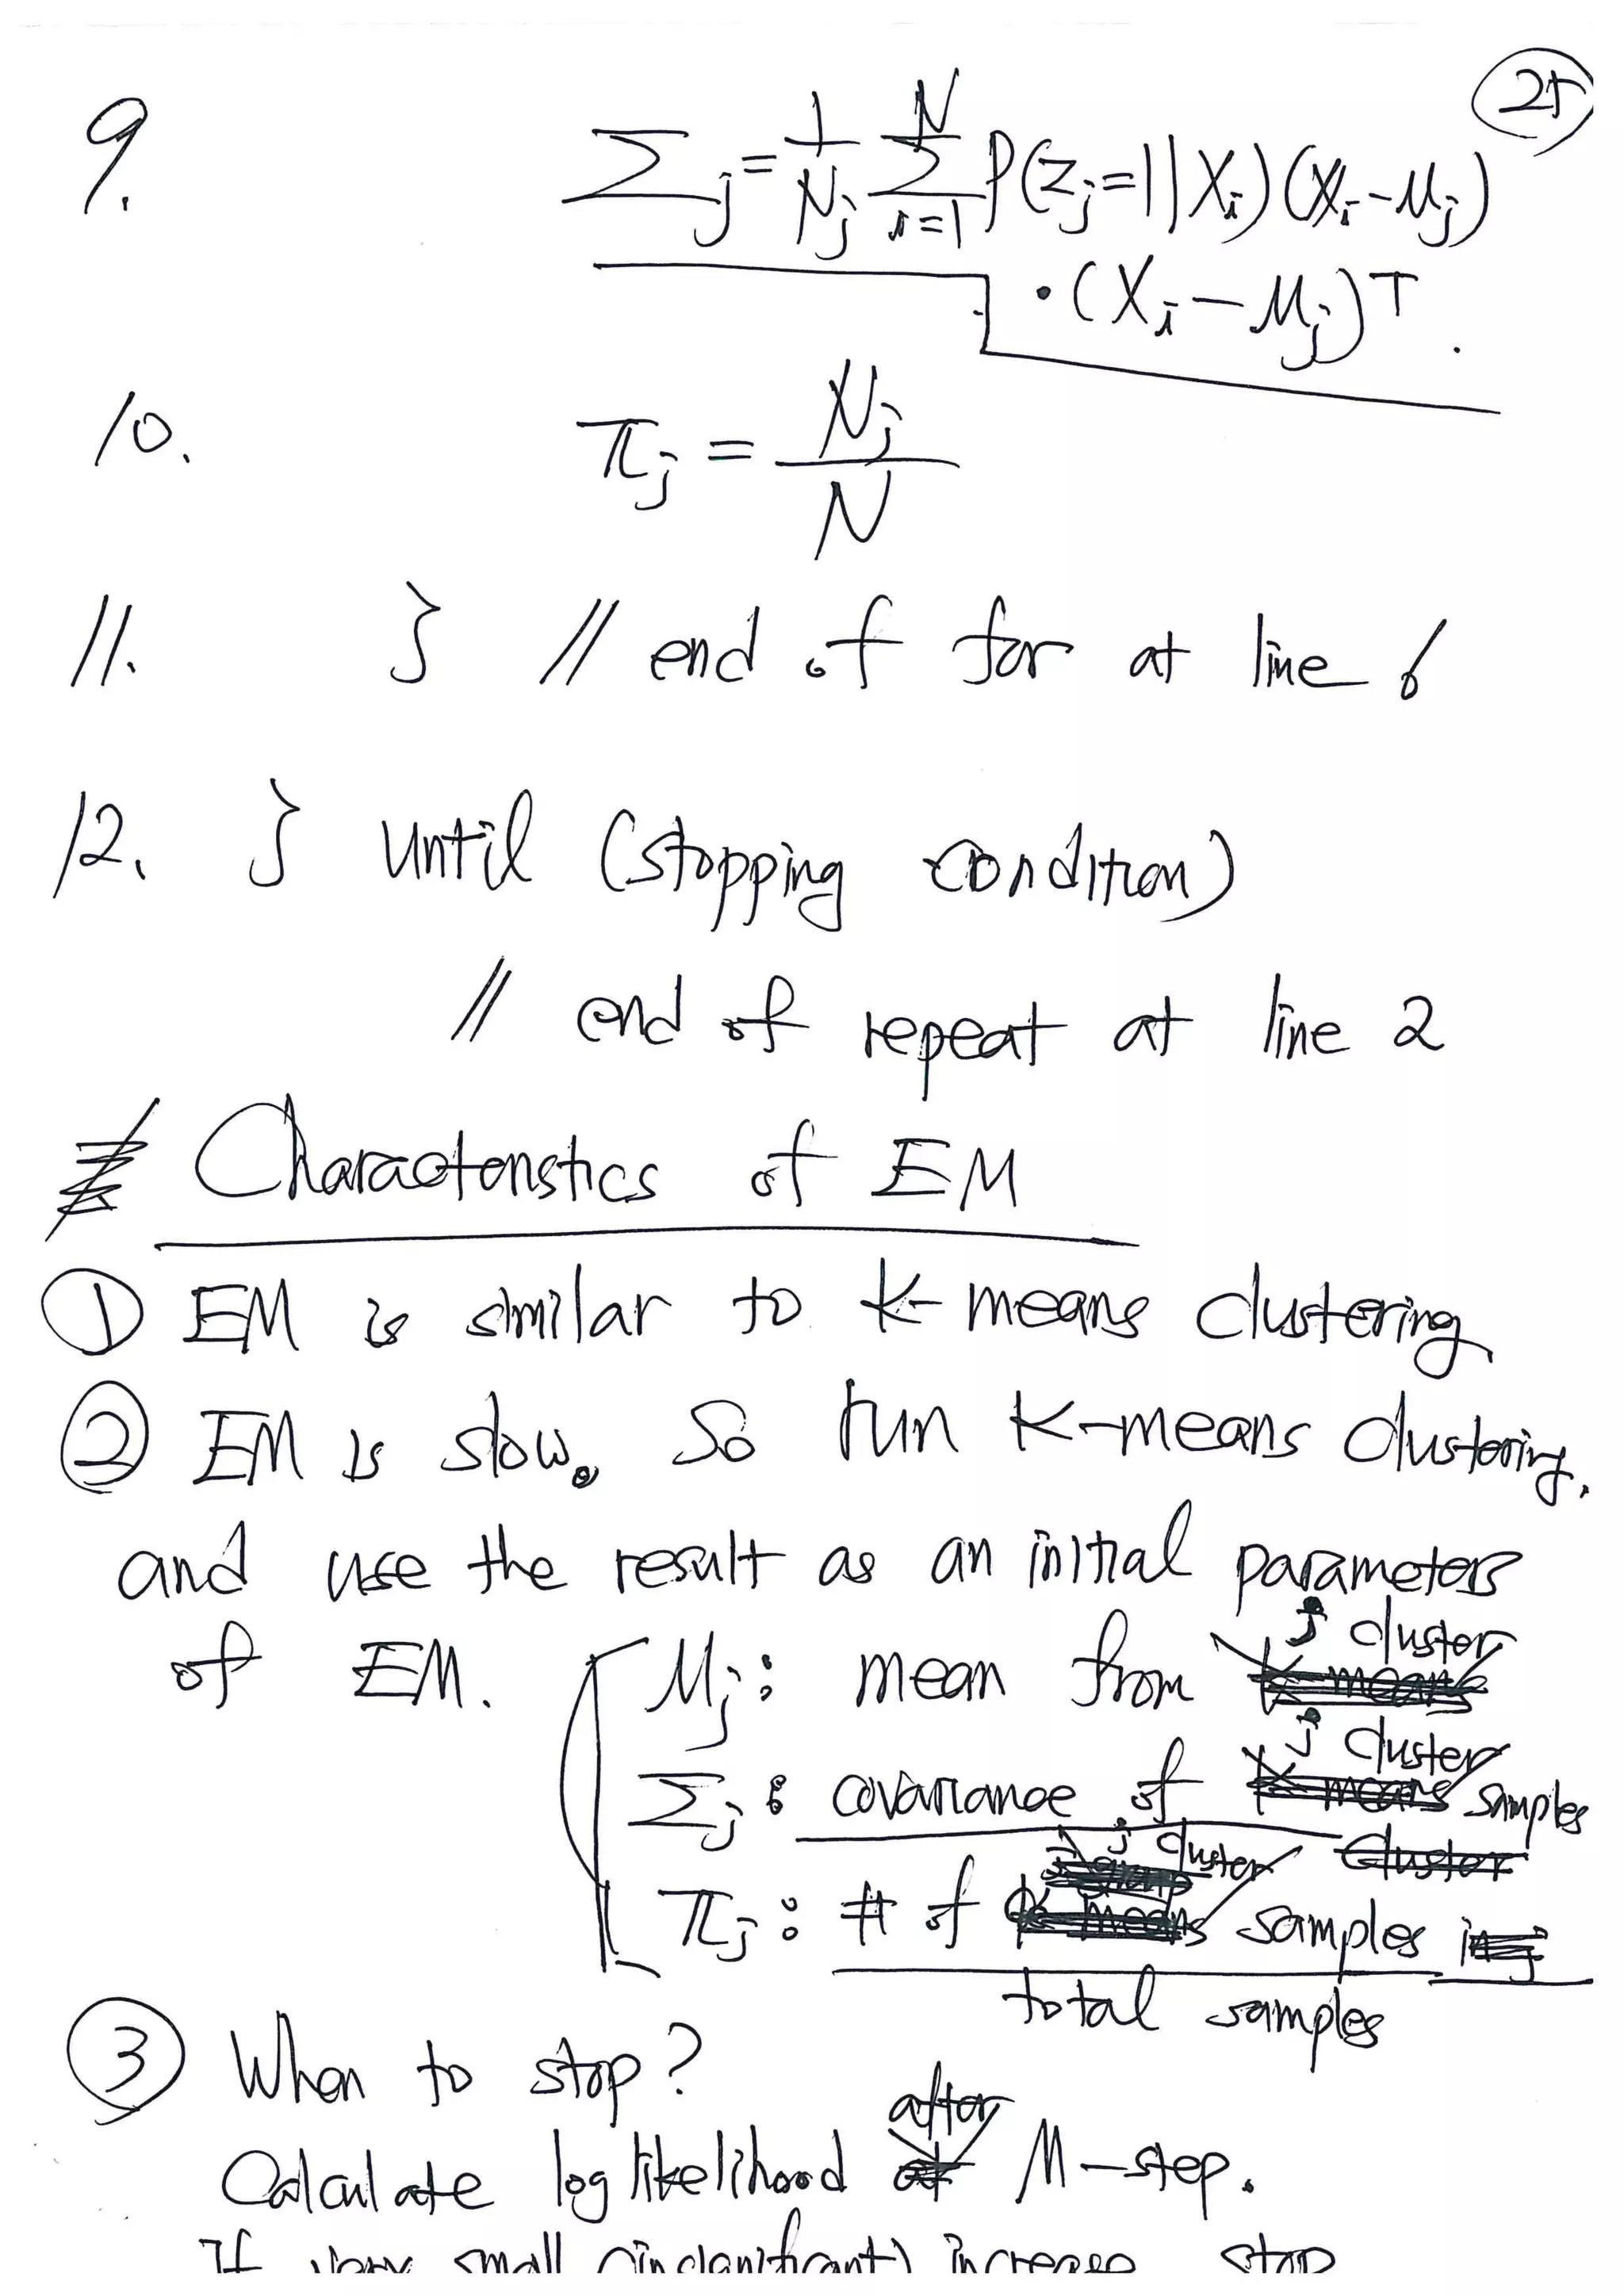 25
9. Σj = 1/Nj Σ_{i=1}^{N} P(zj=1|Xi)(Xi-Mj)
·(Xi-Mj)T.
10. πj = Nj/N
11. } // end of for at line 6
12. } until (stopping condition)
// end of repeat at line 2
Characteristics of EM
① EM is similar to K-means clustering
② EM is slow. So run K-means clustering.
and use the result as an initial parameters
j cluster
of EM. Mj: mean from K means
j cluster
Σj: covariance of K means samples
j cluster Cluster
πj: # of K means samples in j
total samples
③ When to stop?
after
Calculate log likelihood at M-step.
If very small (insignificant) increase stop